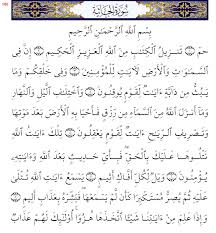 سُورَةُ الجَاثِيَةِ
بِسْمِ ٱللَّهِ ٱلرَّحْمَٰنِ ٱلرَّحِيمِ
حمٓ ۝ تَنزِيلُ ٱلْكِتَٰبِ مِنَ ٱللَّهِ ٱلْعَزِيزِ ٱلْحَكِيمِ ۝ إِنَّ فِى
ٱلسَّمَٰوَٰتِ وَٱلْأَرْضِ لَءَايَٰتٍ لِّلْمُؤْمِنِينَ ۝ وَفِى خَلْقِكُمْ وَمَا
يَبُثُّ مِن دَآبَّةٍ ءَايَٰتٌ لِّقَوْمٍ يُوقِنُونَ ۝ وَٱخْتِلَٰفِ ٱلَّيْلِ وَٱلنَّهَارِ
وَمَآ أَنزَلَ ٱللَّهُ مِنَ ٱلسَّمَآءِ مِن رِّزْقٍ فَأَحْيَا بِهِ ٱلْأَرْضَ بَعْدَ مَوْتِهَا
وَتَصْرِيفِ ٱلرِّيَٰحِ ءَايَٰتٌ لِّقَوْمٍ يَعْقِلُونَ ۝ تِلْكَ ءَايَٰتُ ٱللَّهِ
نَتْلُوهَا عَلَيْكَ بِٱلْحَقِّ فَبِأَىِّ حَدِيثٍۭ بَعْدَ ٱللَّهِ وَءَايَٰتِهِۦ
يُؤْمِنُونَ ۝ وَيْلٌ لِّكُلِّ أَفَّاكٍ أَثِيمٍ ۝ يَسْمَعُ ءَايَٰتِ ٱللَّهِ تُتْلَىٰ
عَلَيْهِ ثُمَّ يُصِرُّ مُسْتَكْبِرًا كَأَن لَّمْ يَسْمَعْهَا فَبَشِّرْهُ بِعَذَابٍ أَلِيمٍ ۝
وَإِذَا عَلِمَ مِنْ ءَايَٰتِنَا شَيْـًٔا ٱتَّخَذَهَا هُزُوًا أُو۟لَٰٓئِكَ لَهُمْ عَذَابٌ